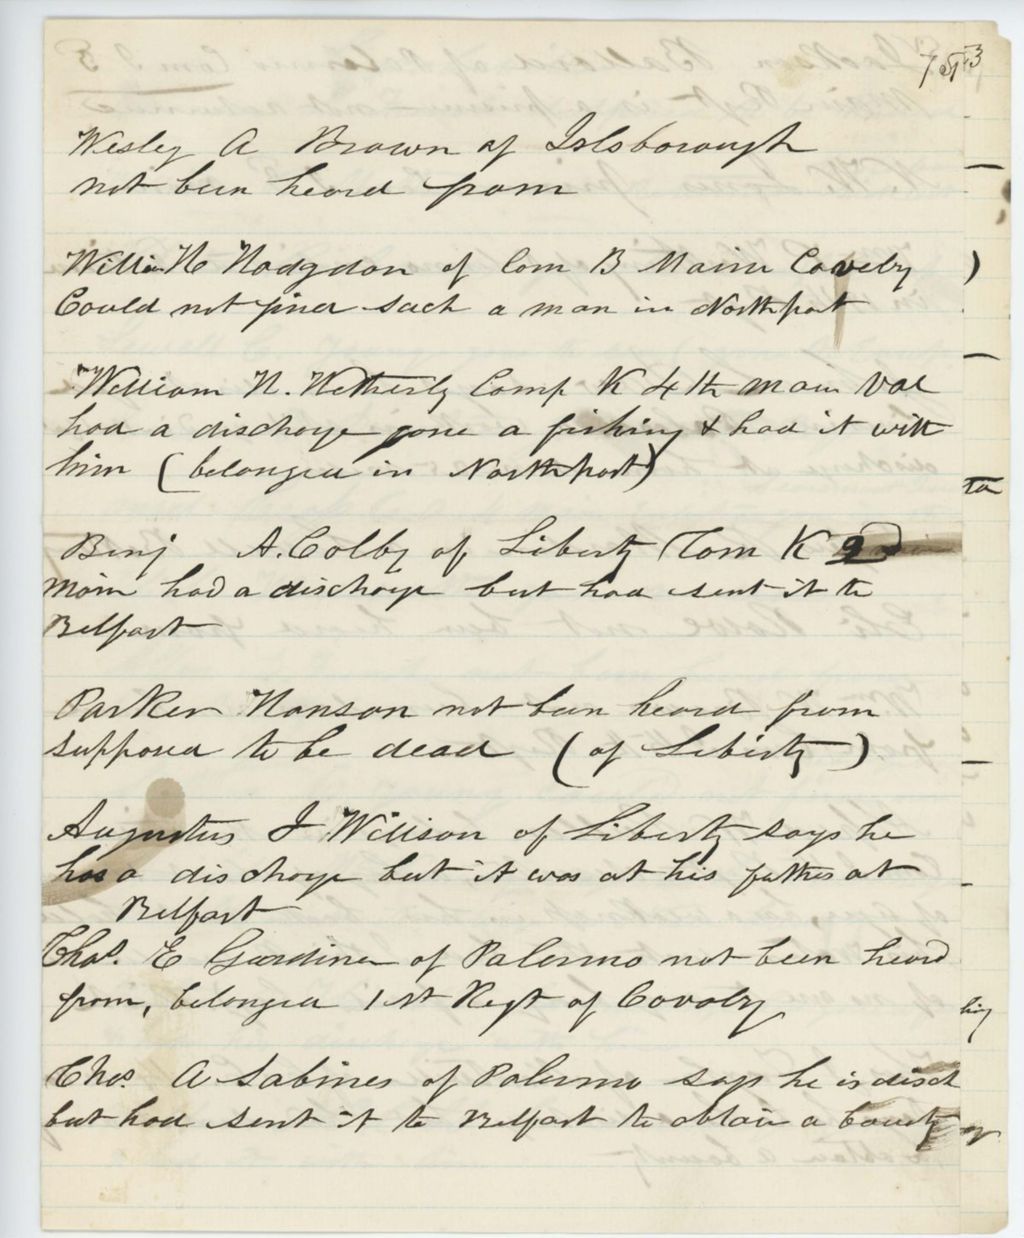 Wesley A Brown of Islsborough
not been heard from
Willia H Hodgdon of Com B Maine Cavelry
Could not find such a man in Northport
William N. Netherly Comp K 4th Main Vol
had a discharge gone a fishing & had it with
him (belonged in Northport)
Benj A. Colby of Liberty Com K 2d
Main had a discharge but had sent it to
Belfast
Parker Hanson not been heard from
supposed to be dead (of Liberty)
Augustus J Willson of Liberty says he
has a discharge but it was at his father at
Belfast
Thos. E Gardiner of Palermo not been heard
from, belonged 1st Regt of Cavalry
Thos A Sabines of Palermo says he is disch
but had sent it to Belfast to obtain a bounty